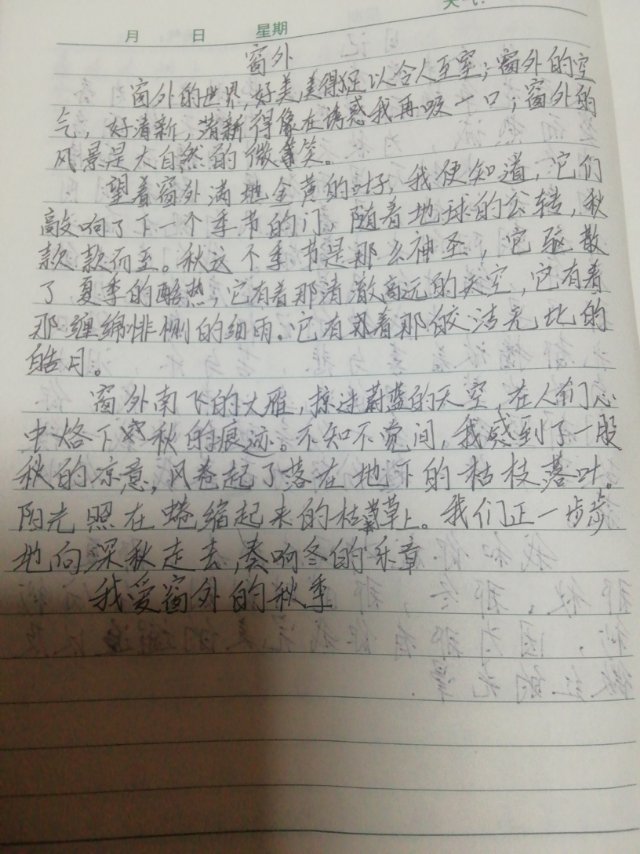 天气
月 日 星期
窗外
窗外的世界,好美,美得足以令人至窒;窗外的空
气,好清新,清新得像在诱惑我再吸一口;窗外的
风景是大自然的微笑。
望着窗外满地金黄的叶子,我便知道,它们
敲响了下一个季节的门。随着地球的公转,秋
款款而至。秋这个季节是那么神圣,它驱散
了夏季的酷热,它有着那清澈高远的天空,它有着
那缠绵悱恻的细雨。它有着那皎洁无比的
皓月。
窗外南下的大雁,掠过蔚蓝的天空,在人们心
中烙下秋的痕迹。不知不觉间,我感到了一股
秋的凉意,风卷起了落在地下的枯枝落叶。
阳光照在蜷缩起来的枯草上。我们正一步步
地向深秋走去,奏响冬的乐章
我爱窗外的秋季